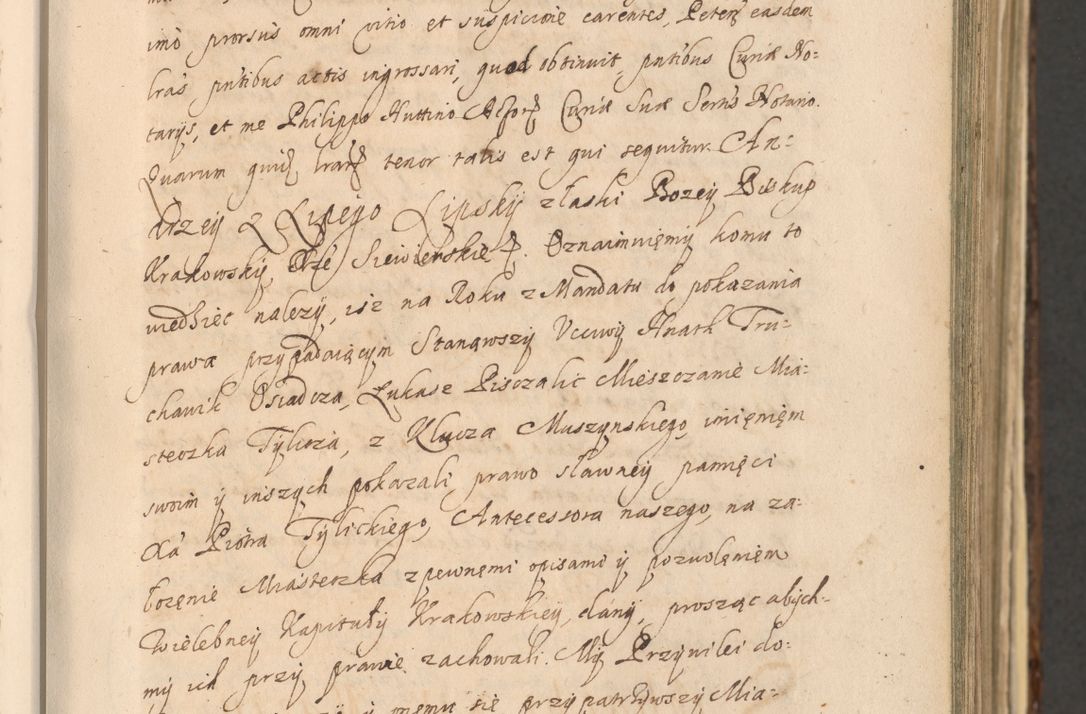 imo prorsus omni vitio et suspicione carentes, Petens easdem
lras pntibus actis ingrossari, quod obtinuit, pntibus Curiæ No-
tarijs, et me Philippo Huttino Curiæ Suæ Sertis Notario.
Quarum quid lrar tenor talis est qui sequitur. An-
drzeij z Lipego Lipskij z łaski Bozeij Biskup
Krakowskij, Xże Siewierskie. Oznaimuięmij komu to
wiedzieć należij, isz na Roku z Mandatu do pokazania
prawa przijpadaiącijm Stanąwszij Uccwij Hnath Tru-
chanik Osiadcza, Łukasz Pisczalic Mieszczanie Mia-
steczka Tijlicza, z Klucza Muszijnskiego, imięniem
swoim ij inszijch pokazali prawo sławneij pamięci
Xa Piotra Tijlickiego, Antecessora naszego, na za-
łozęnie Miasteczka z pewnemi opisami ij pozwolęniem
Wielebneij Kapitułij Krakowskieij, danij, prosząc abijch-
mij ich przij prawie zachowali. Mij Przijwilei do-
ij niemu się przijpatrziwszij Mia-